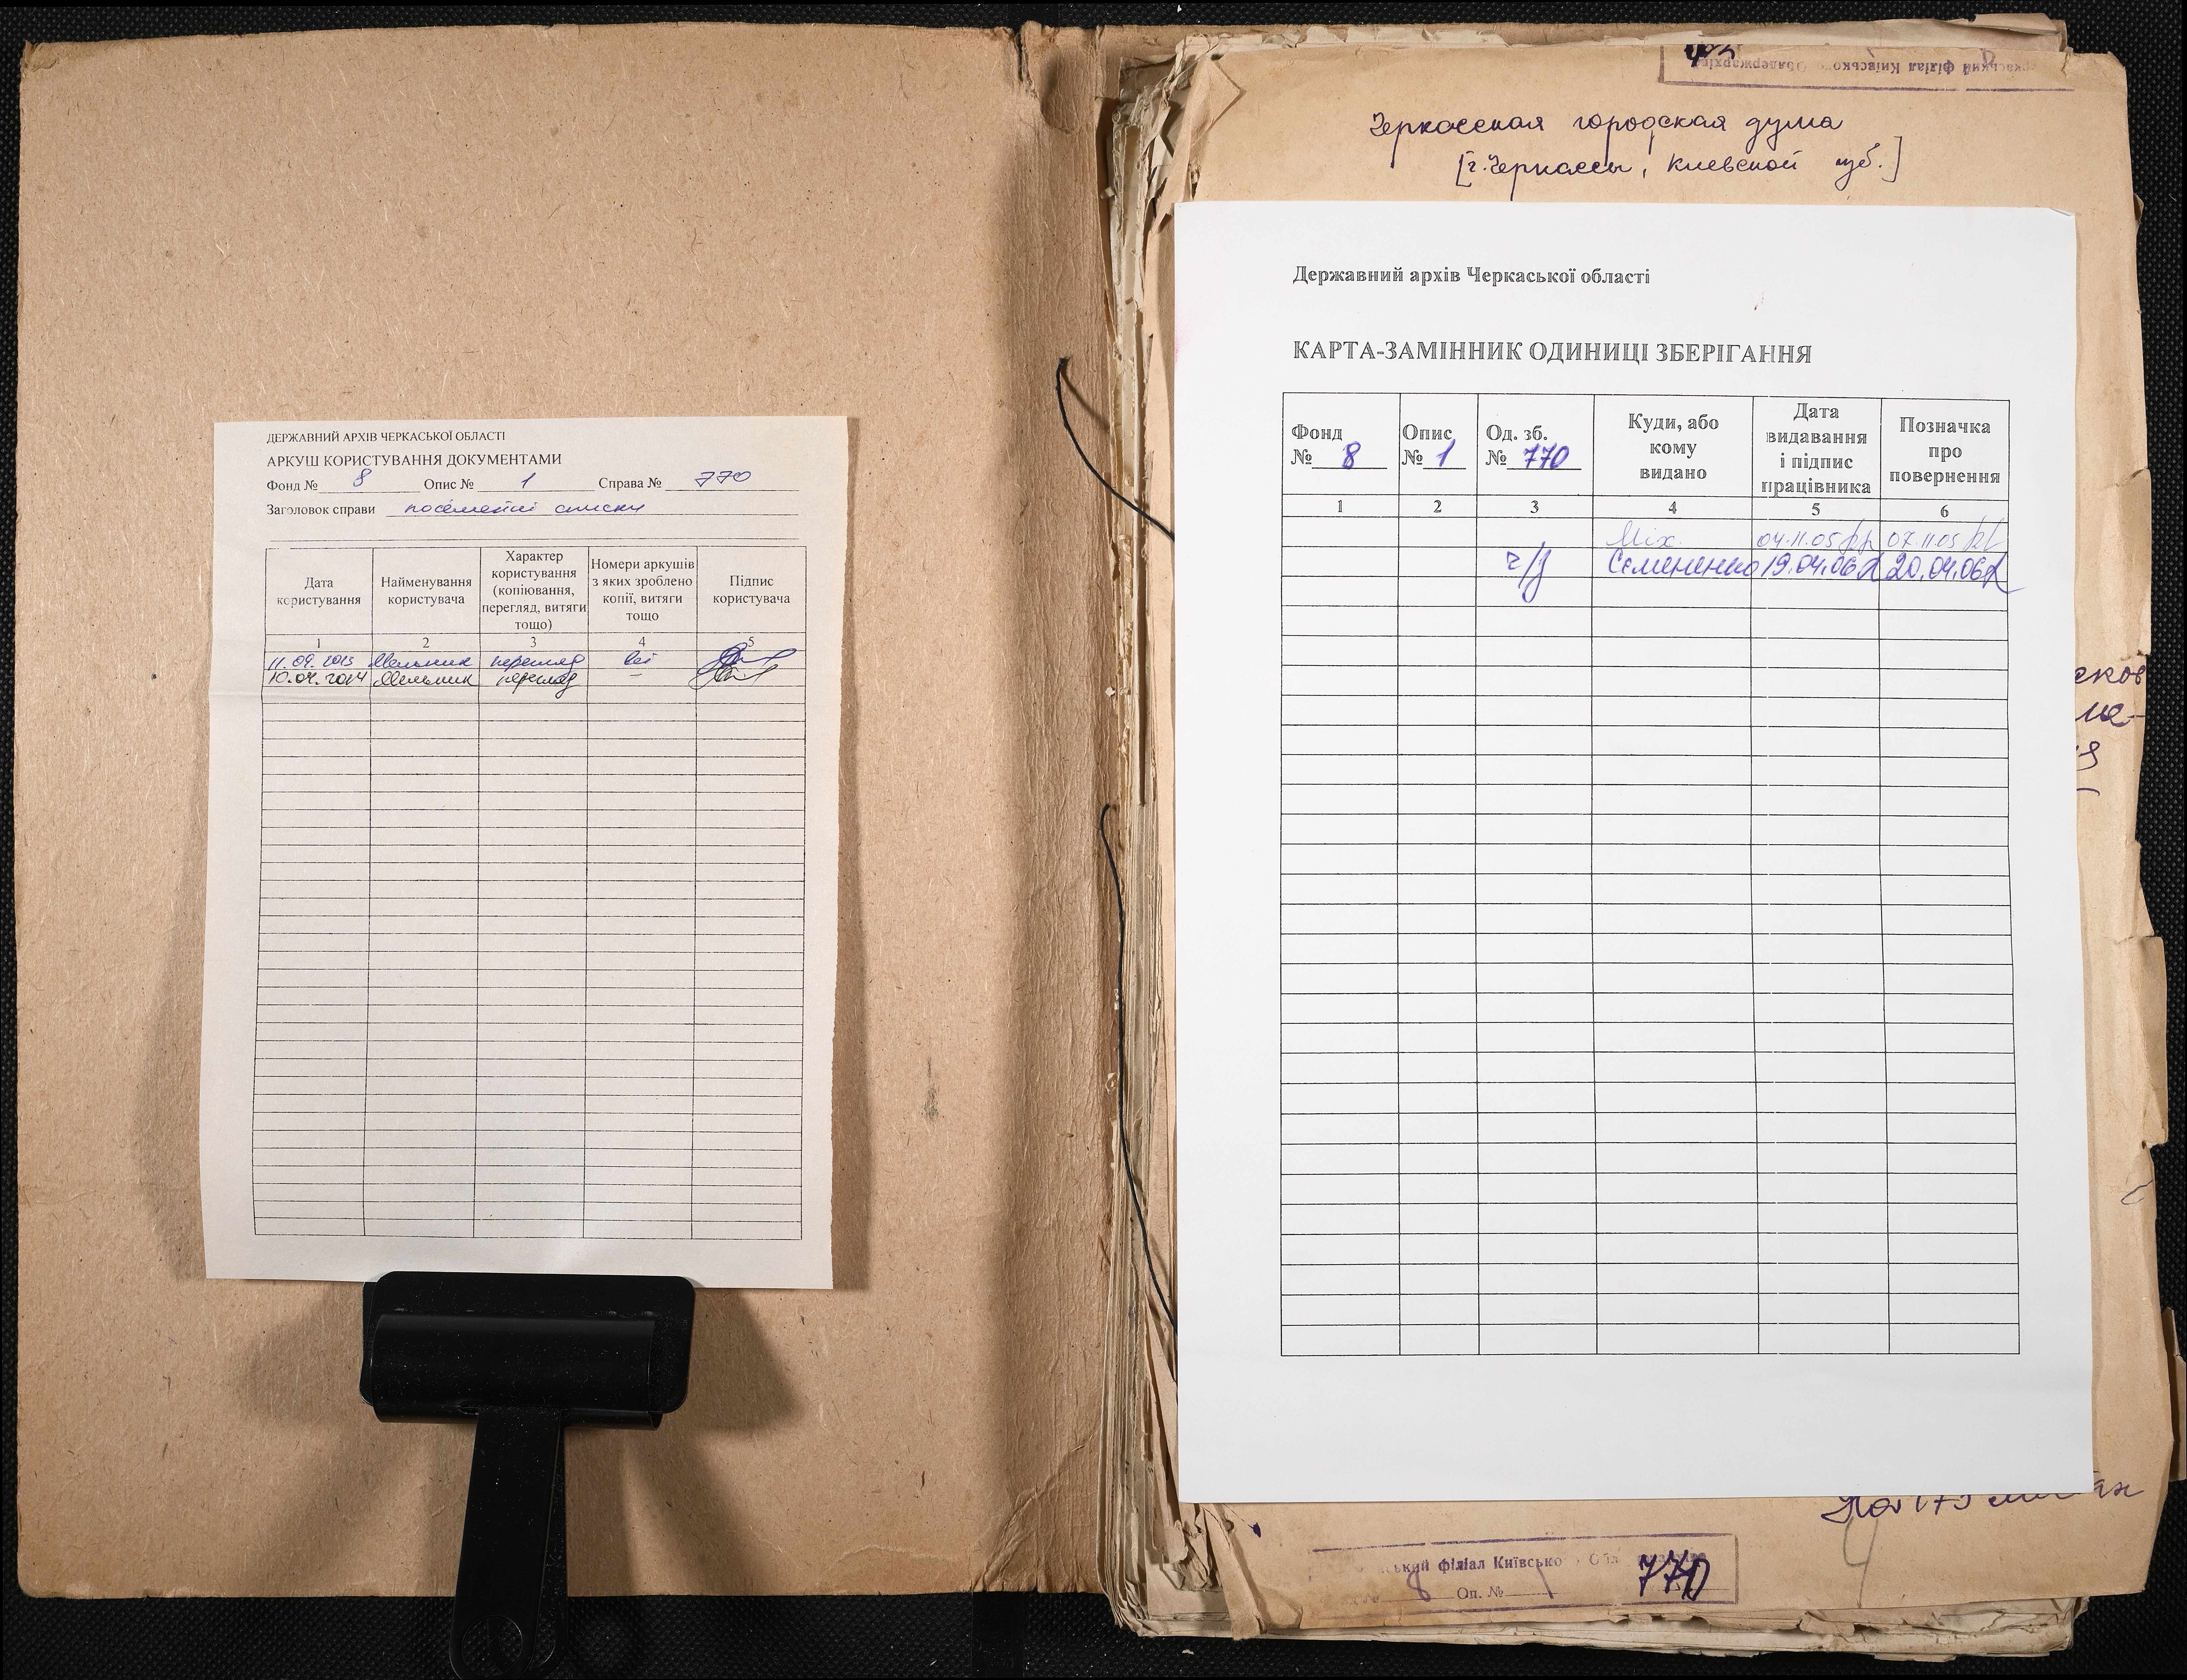 ДЕРЖАВНИЙ АРХІВ ЧЕРКАСЬКОЇ ОБЛАСТІ
АРКУШ КОРИСТУВАННЯ ДОКУМЕНТАМИ
Фонд № 8 Опис № 1 Справа № 770
Заголовок справи посемейні списки
Дата користування
Найменування користувача
Характер користування (копіювання, перегляд, витяги тощо)
Номери аркушів з яких зроблено копії, витяги тощо
Підпис користувача
1 2 3 4 5
11.09.2013 Мельник перегляд всі
10.04.2014 Мельник перегляд —
Черкасская городская дума
[г. Черкассы, Киевской губ.]
Державний архів Черкаської області
КАРТА-ЗАМІННИК ОДИНИЦІ ЗБЕРІГАННЯ
Фонд № 8
Опис № 1
Од. зб. № 770
Куди, або кому видано
Дата видавання і підпис працівника
Позначка про повернення
1 2 3 4 5 6
Міх. 04.11.05 07.11.05
ч/з Семененко 19.04.06 20.04.06
ський філіал Київсько
8 Оп. № 1 770